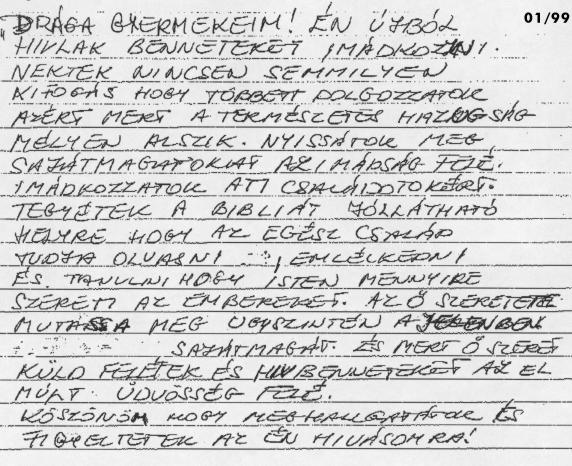 01/99
"DRÁGA GYERMEKEIM! ÉN ÚJBÓL
HIVLAK BENNETEKET IMÁDKOZNI.
NEKTEK NINCSEN SEMMILYEN
KIFOGÁS HOGY TÖBBETT DOLGOZZATOK
AZÉRT MERT A TERMÉSZETES HAZUGSÁG
MÉLYEN ALSZIK. NYISSÁTOK MEG
SAJÁTMAGATOKAT AZ IMÁDSÁG FELÉ.
IMÁDKOZZATOK A TI CSALÁDOTOKÉRT.
TEGYÉTEK A BIBLIÁT JÓLLÁTHATÓ
HELYRE HOGY AZ EGÉSZ CSALÁD
TUDJA OLVASNI , EMLÉLKEDNI
ÉS TANULNI HOGY ISTEN MENNYIRE
SZERETI AZ EMBEREKET. AZ Ő SZERETETE
MUTASSA MEG ÚGYSZINTÉN A JELENBEN
SAJÁTMAGÁT. ÉS MERT Ő SZERET
KÜLD FELÉTEK ÉS HIV BENNETEKET AZ EL
MÚLT ÜDVÖSSÉG FELÉ.
KÖSZÖNÖM HOGY MEGHALLGATÁTOK ÉS
FIGYELTETEK AZ ÉN HIVÁSOMRA!